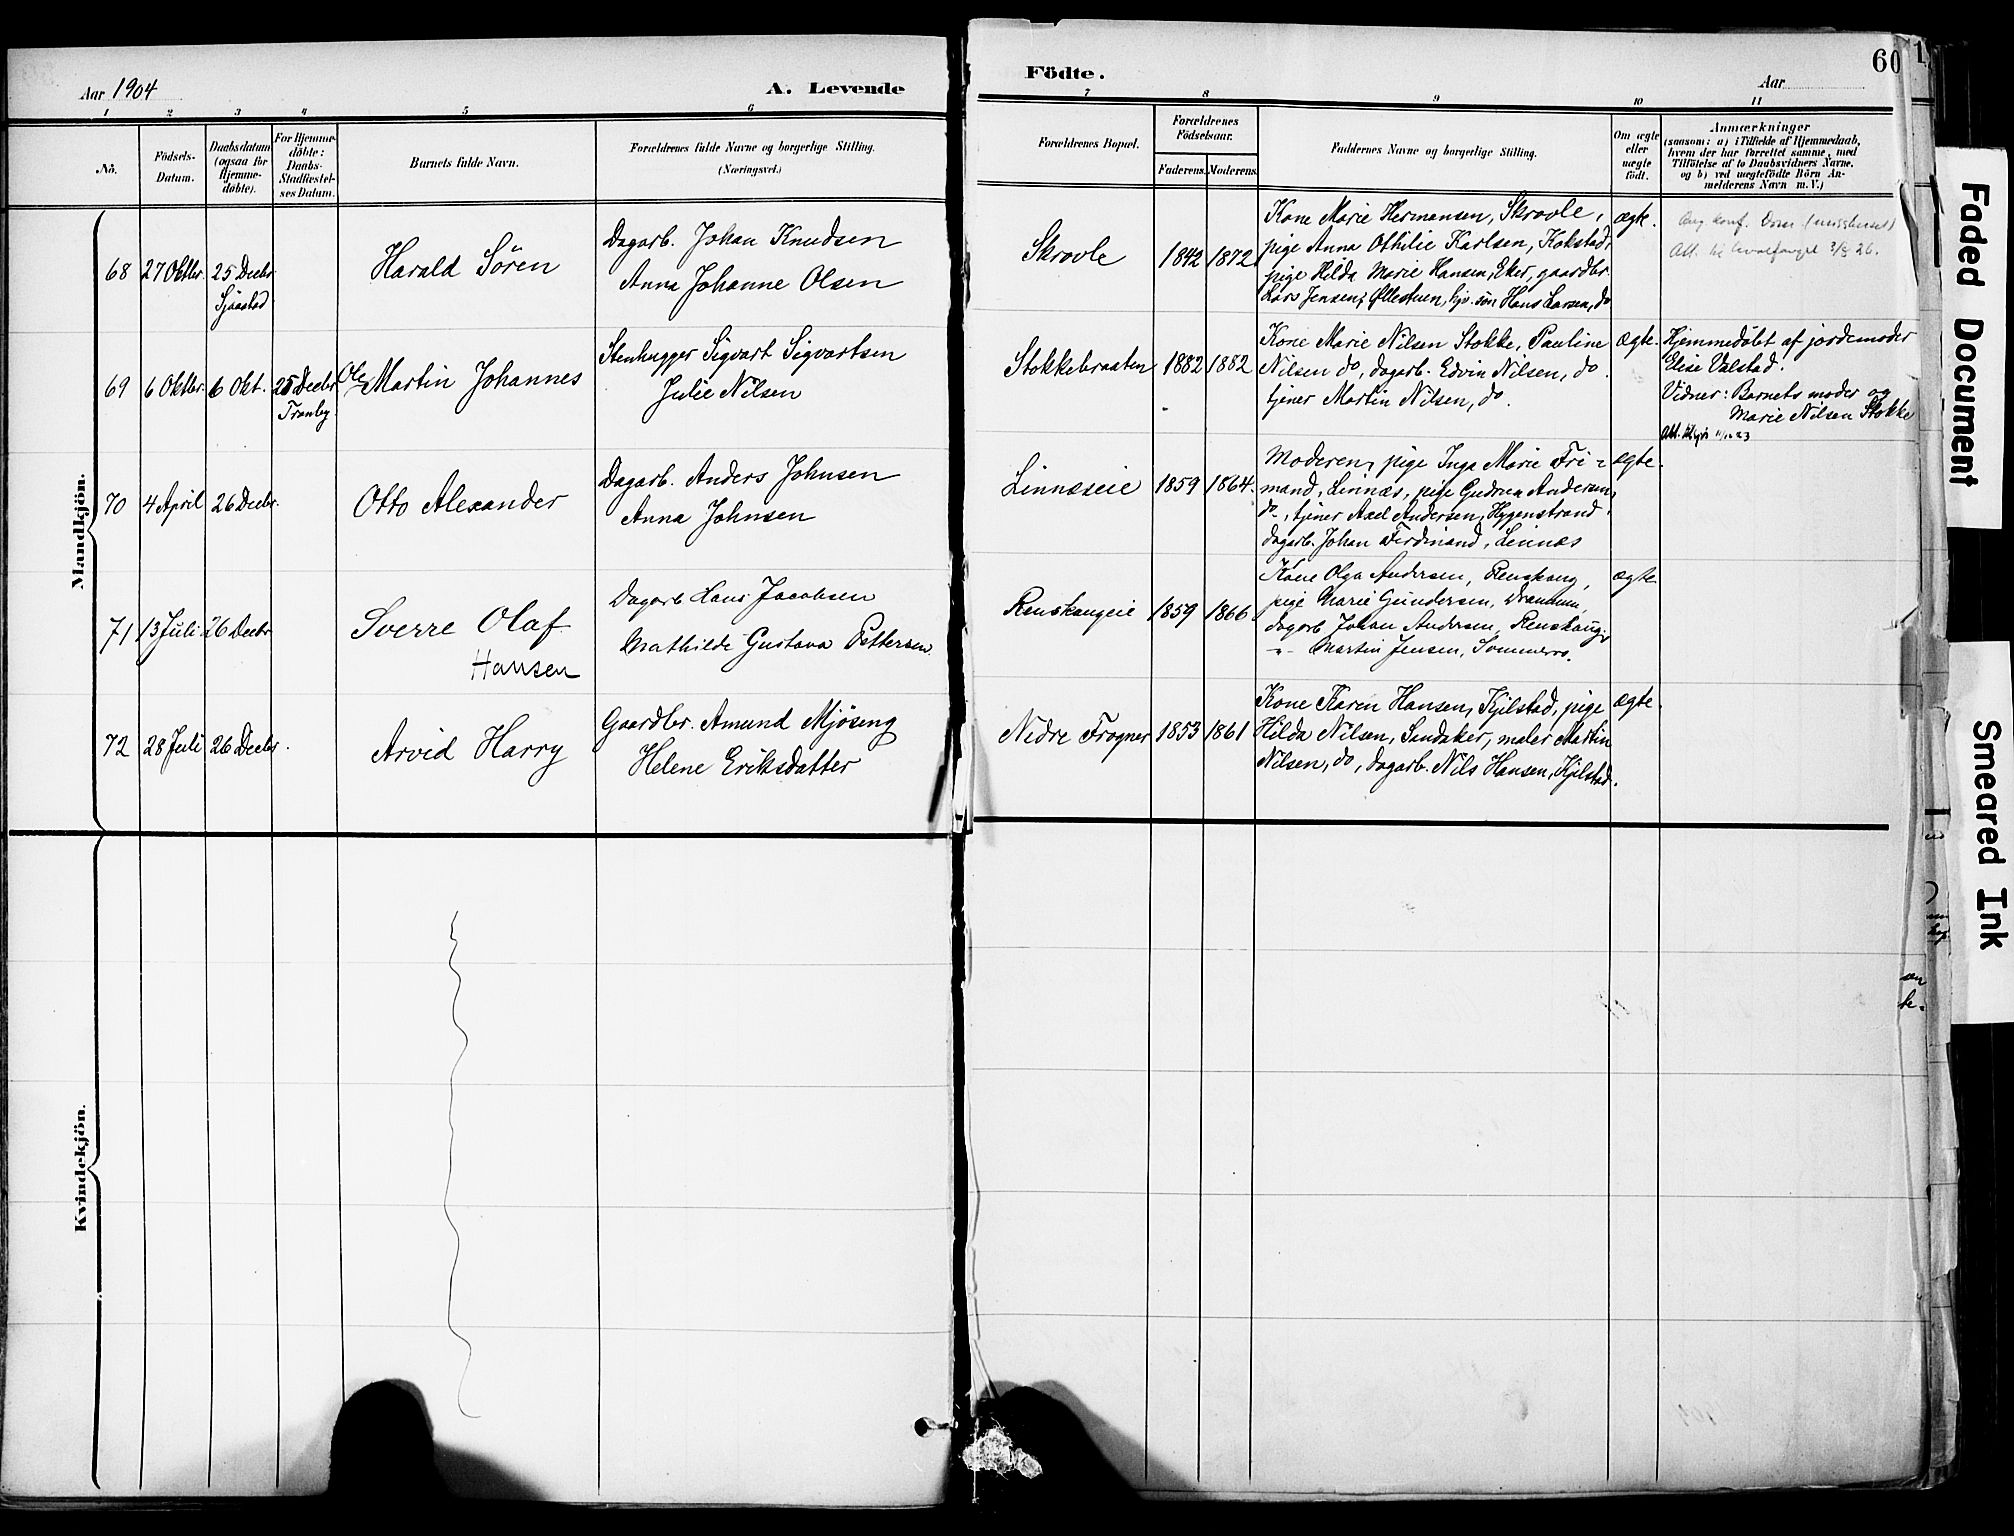 Aar 1904
A. Levende
Födte.
Aar
60
1 2 3 4 5 6
7 8 9 10 11
No.
Födsels-
Datum.
Daabsdatum
(ogsaa for
Hjemme-
döbte).
For Hjemme-
döbte:
Daabs-
Stadfæstel-
ses Datum.
Barnets fulde Navn.
Forældrenes fulde Navne og borgerlige Stilling.
(Næringsvei.)
Forældrenes Bopæl.
Forældrenes
Födselsaar.
Faderens.
Moderens.
Faddernes Navne og borgerlige Stilling.
Om ægte
eller
uægte
födt.
Anmærkninger
(saasom: a) i Tilfælde af Hjemmedaab,
hvem der har forrettet samme, med
Tilföielse af to Daabsvidners Navne.
og b) ved uægtefödte Börn An-
melderens Navn m. V.)
Mandkjön.
68
27 Oktbr.
25 Decbr
Sjåstad
Harald Sören
Dagarb. Johan Knudsen
Anna Johanne Olsen
Skrovle
1842
1872
Kone Marie Hermansen, Skrovle,
pige Anna Othilie Karlsen, Kokstad,
pige Hilda Marie Hansen, Eker, gaardbr.
Lars Jensen, Øllestuen, hjv. sön Hans Larsen, do
ægte.
69
6 Oktbr.
6 Okt.
25 Decbr
Tranby.
Ole Martin Johannes
Stenhugger Sigvart Sigvartsen
Julie Nilsen
Stokkebraaten
1882
1882
Kone Marie Nilsen Stokke, Pauline
Nilsen do, dagarb. Edvin Nilsen, do.
tjener Martin Nilsen, do.
ægte.
Hjemmedöbt af jordemoder
Elise Valstad.
Vidner: Barnets moder og
Marie Nilsen Stokke
70
4 April
26 Decbr.
Otto Alexander
Dagarb. Anders Johnsen
Anna Johnsen
Linnæseie
1859
1864.
Moderen, pige Inga Marie Fri-
mand, Linnæs, pige Gudrun Andersen,
do, tjener Axel Andersen, Hygenstrand,
dagarb. Johan Ferdinand, Linnæs
ægte.
71
13 Juli
26 Decbr
Sverre Olaf
Hansen
Dagarb Hans Jacobsen
Mathilde Gustava Pettersen.
Renskaugeie
1859
1866
Kone Olga Andersen, Renskaug,
pige Marie Gundersen, Drammen,
dagarb Johan Andersen, Renskaug,
-"- Martin Jensen, Sommerro.
ægte
72
28 Juli
26 Decbr.
Arvid Harry
Gaardbr. Amund Mjöseng
Helene Eriksdatter
Nedre Frogner
1853
1861
Kone Karen Hansen, Kjilstad, pige
Hilda Nilsen, Sandaker, maler Martin
Nilsen, do, dagarb. Nils Hansen, Kjilstad.
ægte.
Kvindekjön.
Faded Document
Smeared Ink